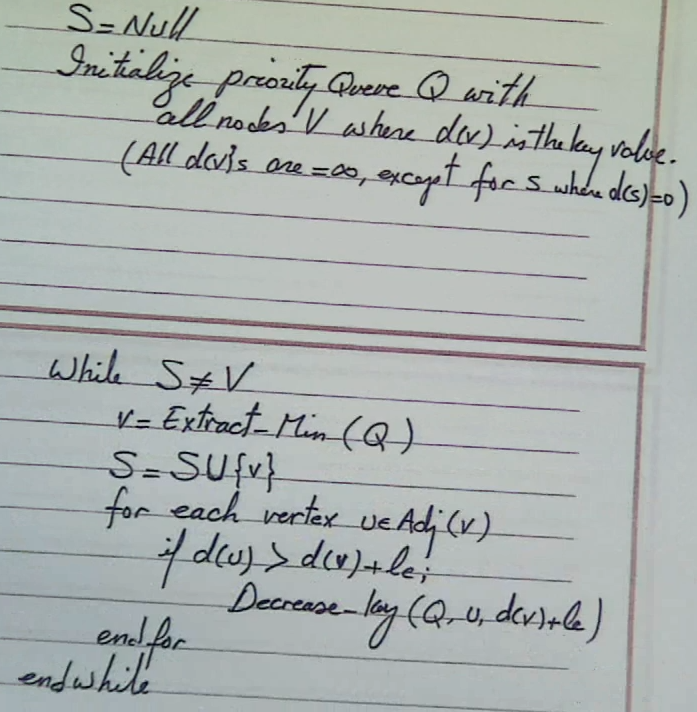 S = Null
Initialize priority Queue Q with
all nodes V where d(v) is the key value.
(All d(v)s are = ∞, except for s where d(s)=0)
While S ≠ V
v = Extract-Min (Q)
S = S U {v}
for each vertex u ∈ Adj (v)
if d(u) > d(v) + le;
Decrease-key (Q, u, d(v)+le)
end for
endwhile